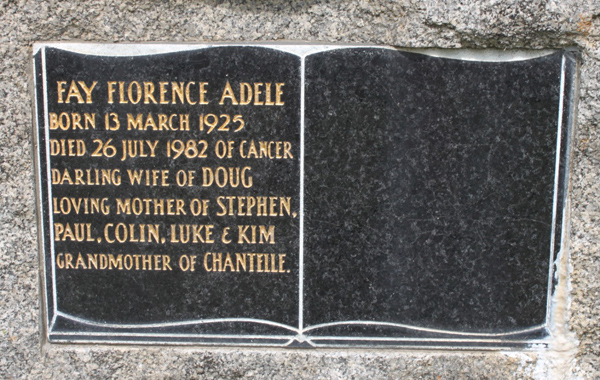 FAY FLORENCE ADELE
BORN 13 MARCH 1925
DIED 26 JULY 1982 OF CANCER
DARLING WIFE OF DOUG
LOVING MOTHER OF STEPHEN,
PAUL, COLIN, LUKE & KIM
GRANDMOTHER OF CHANTELLE.